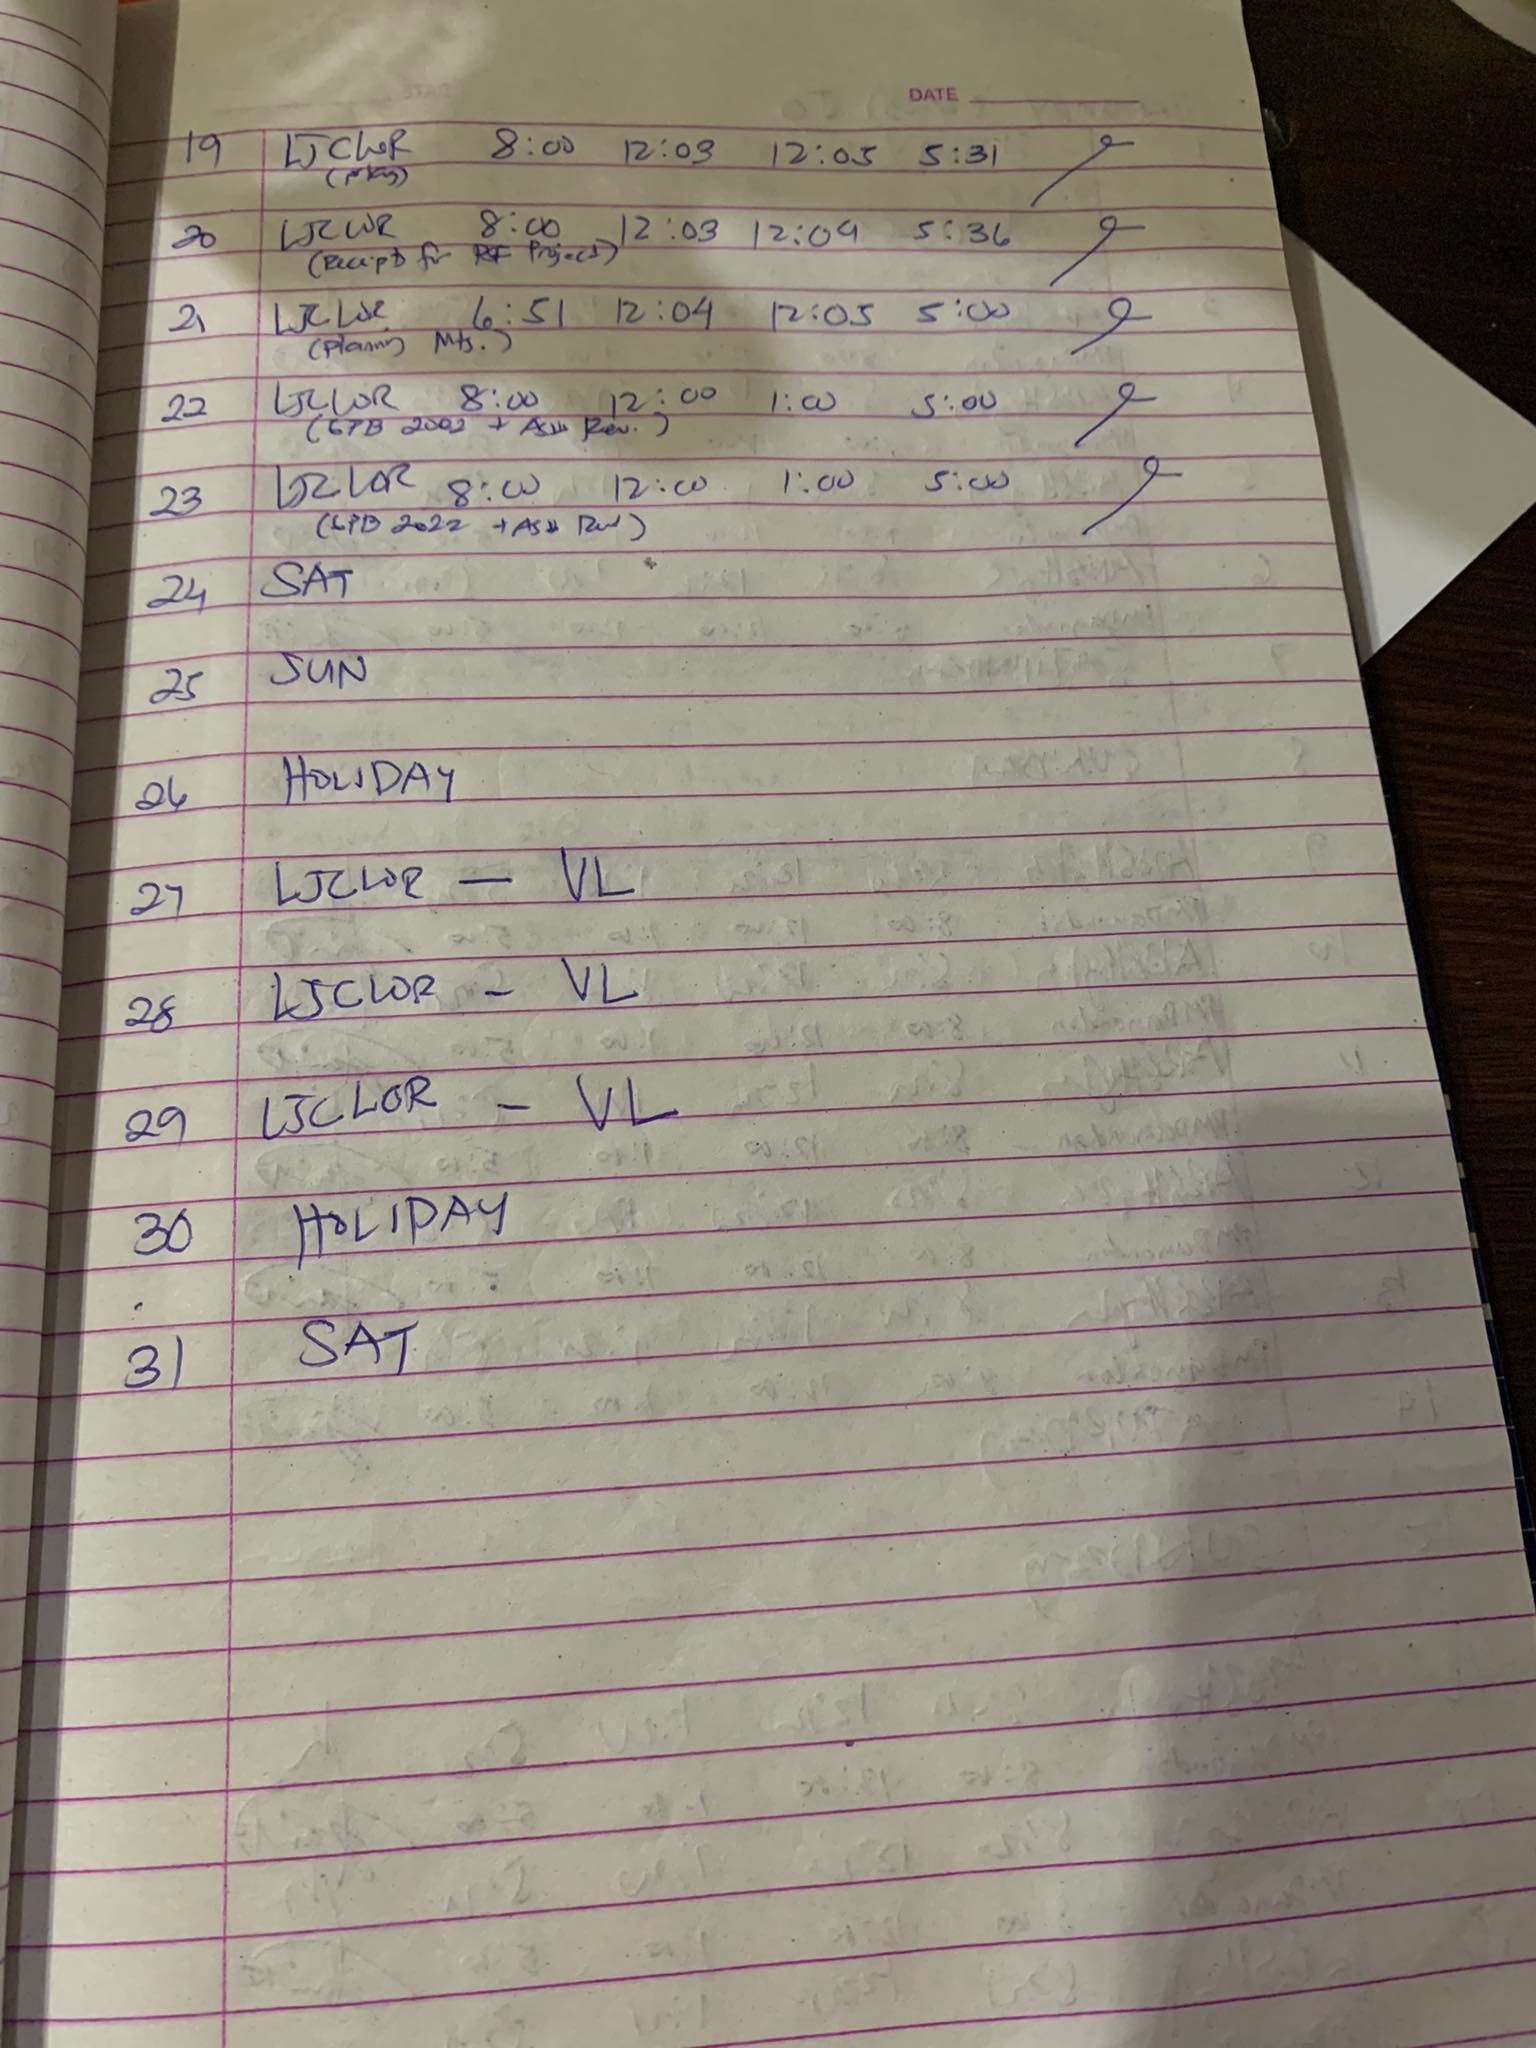 DATE
19 LJCLOR 8:00 12:03 12:05 5:31
20 LJCLOR 8:00 12:03 12:04 5:36
(Receipts for Project)
21 LJCLOR 6:51 12:04 12:05 5:00
(Planning Mtg.)
22 LJCLOR 8:00 12:00 1:00 5:00
(GPB 2002 + Rev.)
23 LJCLOR 8:00 12:00 1:00 5:00
(GPB 2022 +
24 SAT
25 SUN
26 HOLIDAY
27 LJCLOR — VL
28 LJCLOR - VL
29 LJCLOR - VL
30 HOLIDAY
31 SAT